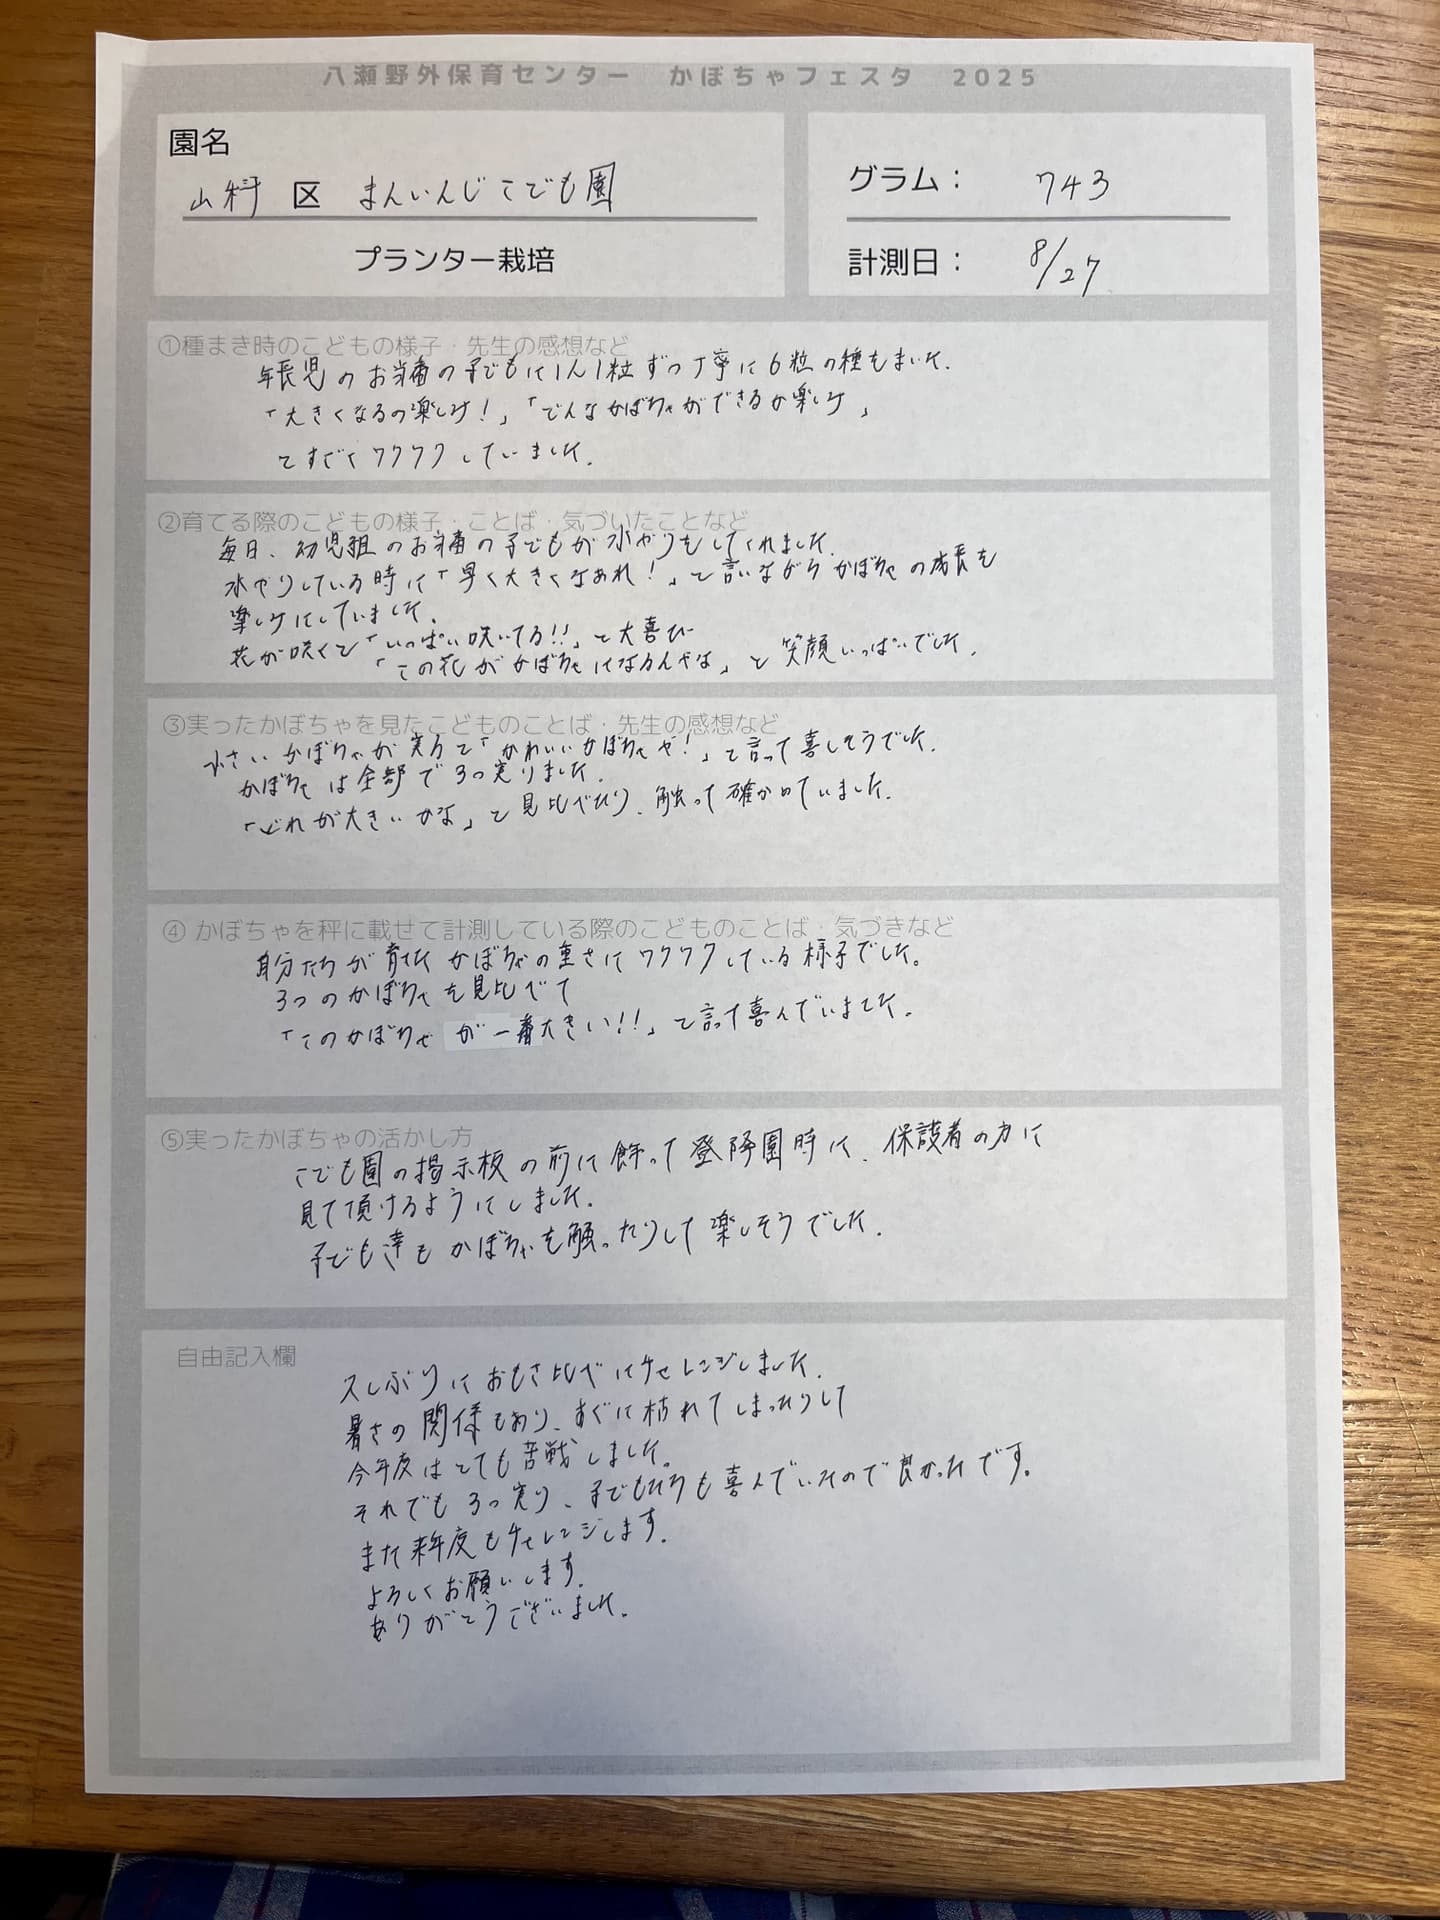 八瀬野外保育センター かぼちゃフェスタ 2025
園名
山科 区 まんいんじこども園
プランター栽培
グラム： 743
計測日： 8/27
①種まき時のこどもの様子・先生の感想など
年長児のお当番の子どもに1人1粒ずつ丁寧に6粒の種をまいた.
「大きくなるの楽しみ!」「どんなかぼちゃができるか楽しみ」
とすごくワクワクしていました.
②育てる際のこどもの様子・ことば・気づいたことなど
毎日、幼児組のお当番の子どもが水やりをしてくれました.
水やりしている時に「早く大きくなあれ!」と言いながらかぼちゃの成長を
楽しみにしていました.
花が咲くと「いっぱい咲いてる!!」と大喜び
「この花がかぼちゃになるんやな」と笑顔いっぱいでした.
③実ったかぼちゃを見たこどものことば・先生の感想など
小さいかぼちゃが実ると「かわいいかぼちゃや!」と言って喜しそうでした.
かぼちゃは全部で3つ実りました.
「どれが大きいかな」と見比べたり、触って確かめていました.
④ かぼちゃを秤に載せて計測している際のこどものことば・気づきなど
自分たちが育てたかぼちゃの重さにワクワクしている様子でした。
3つのかぼちゃを見比べて
「このかぼちゃが一番大きい!!」と言って喜んでいました.
⑤実ったかぼちゃの活かし方
こども園の掲示板の前に飾って登降園時に、保護者の方に
見て頂けるようにしました.
子ども達もかぼちゃを触ったりして楽しそうでした.
自由記入欄
久しぶりにおもさ比べにチャレンジしました.
暑さの関係もあり、すぐに枯れてしまったりして
今年度はとても苦戦しました.
それでも3つ実り、子どもたちも喜んでいたので良かったです.
また来年度もチャレンジします.
よろしくお願いします.
ありがとうございました.